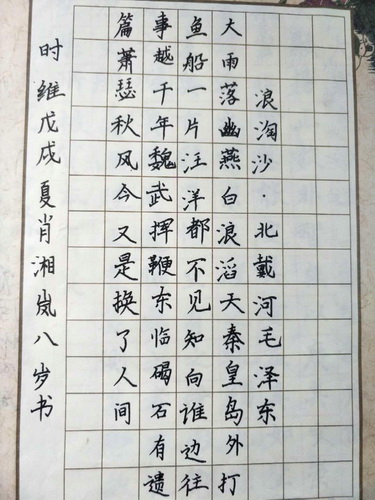 浪淘沙·北戴河毛泽东
大雨落幽燕白浪滔天秦皇岛外打
鱼船一片汪洋都不见知向谁边往
事越千年魏武挥鞭东临碣石有遗
篇萧瑟秋风今又是换了人间
时维戊戌夏肖湘岚八岁书